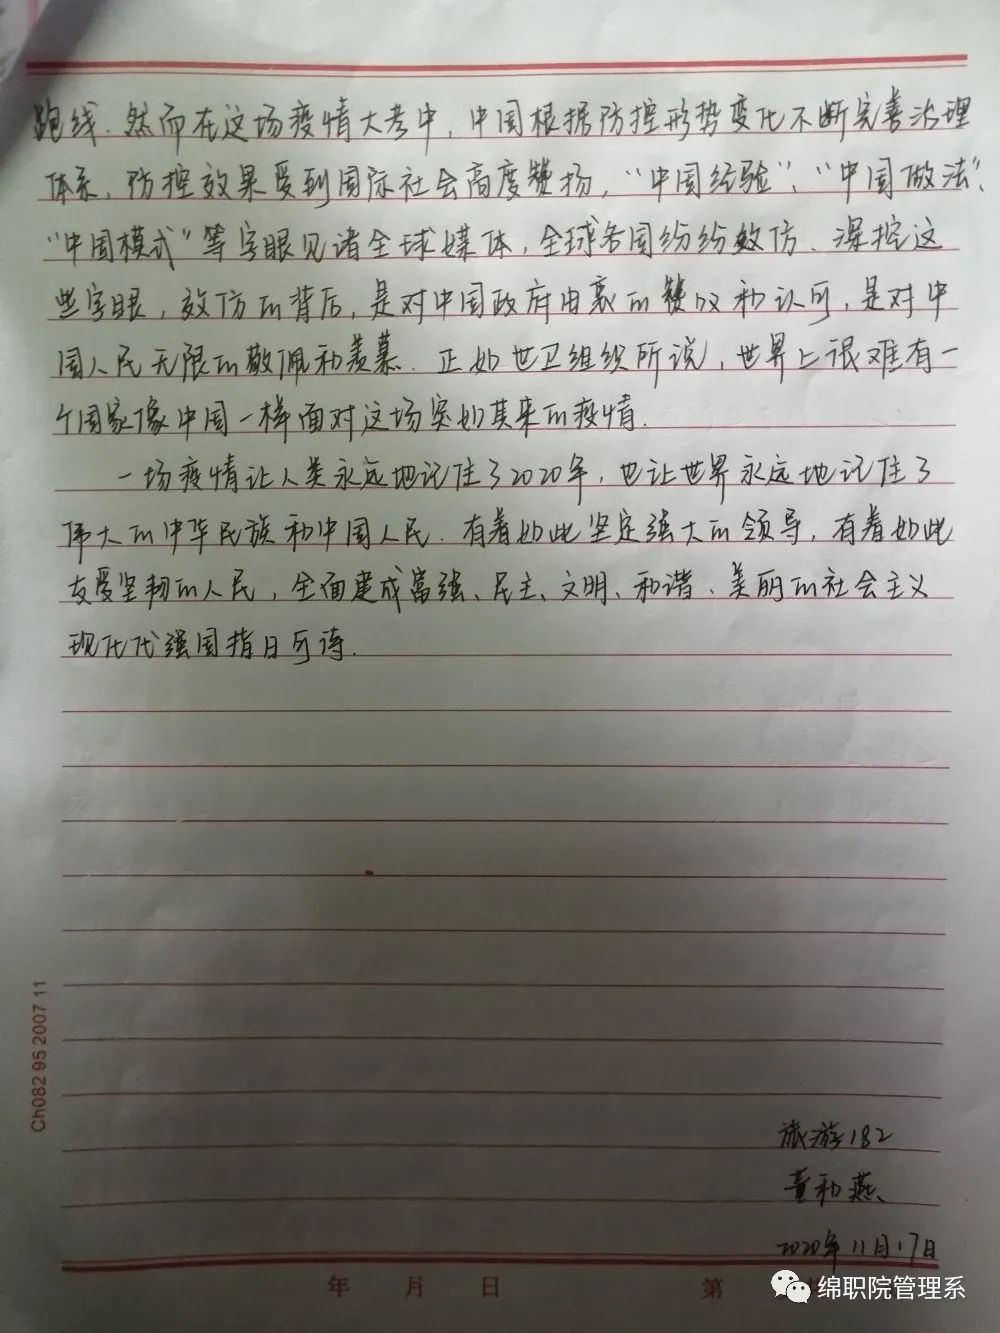 跑线.然而在这场疫情大考中,中国根据防控形势变化不断完善治理
体系,防控效果受到国际社会高度赞扬,“中国经验”、“中国做法”、
“中国模式”等字眼见诸全球媒体,全球各国纷纷效仿.深挖这
些字眼,效仿的背后,是对中国政府由衷的赞叹和认可,是对中
国人民无限的敬佩和羡慕.正如世卫组织所说,世界上很难有一
个国家像中国一样面对这场突如其来的疫情.
一场疫情让人类永远地记住了2020年,也让世界永远地记住了
伟大的中华民族和中国人民.有着如此坚定强大的领导,有着如此
友爱坚韧的人民,全面建成富强、民主、文明、和谐、美丽的社会主义
现代化强国指日可待.
Ch082 95 2007 11
旅游182
董和燕
2020年11月17日
年 月 日 第
绵职院管理系